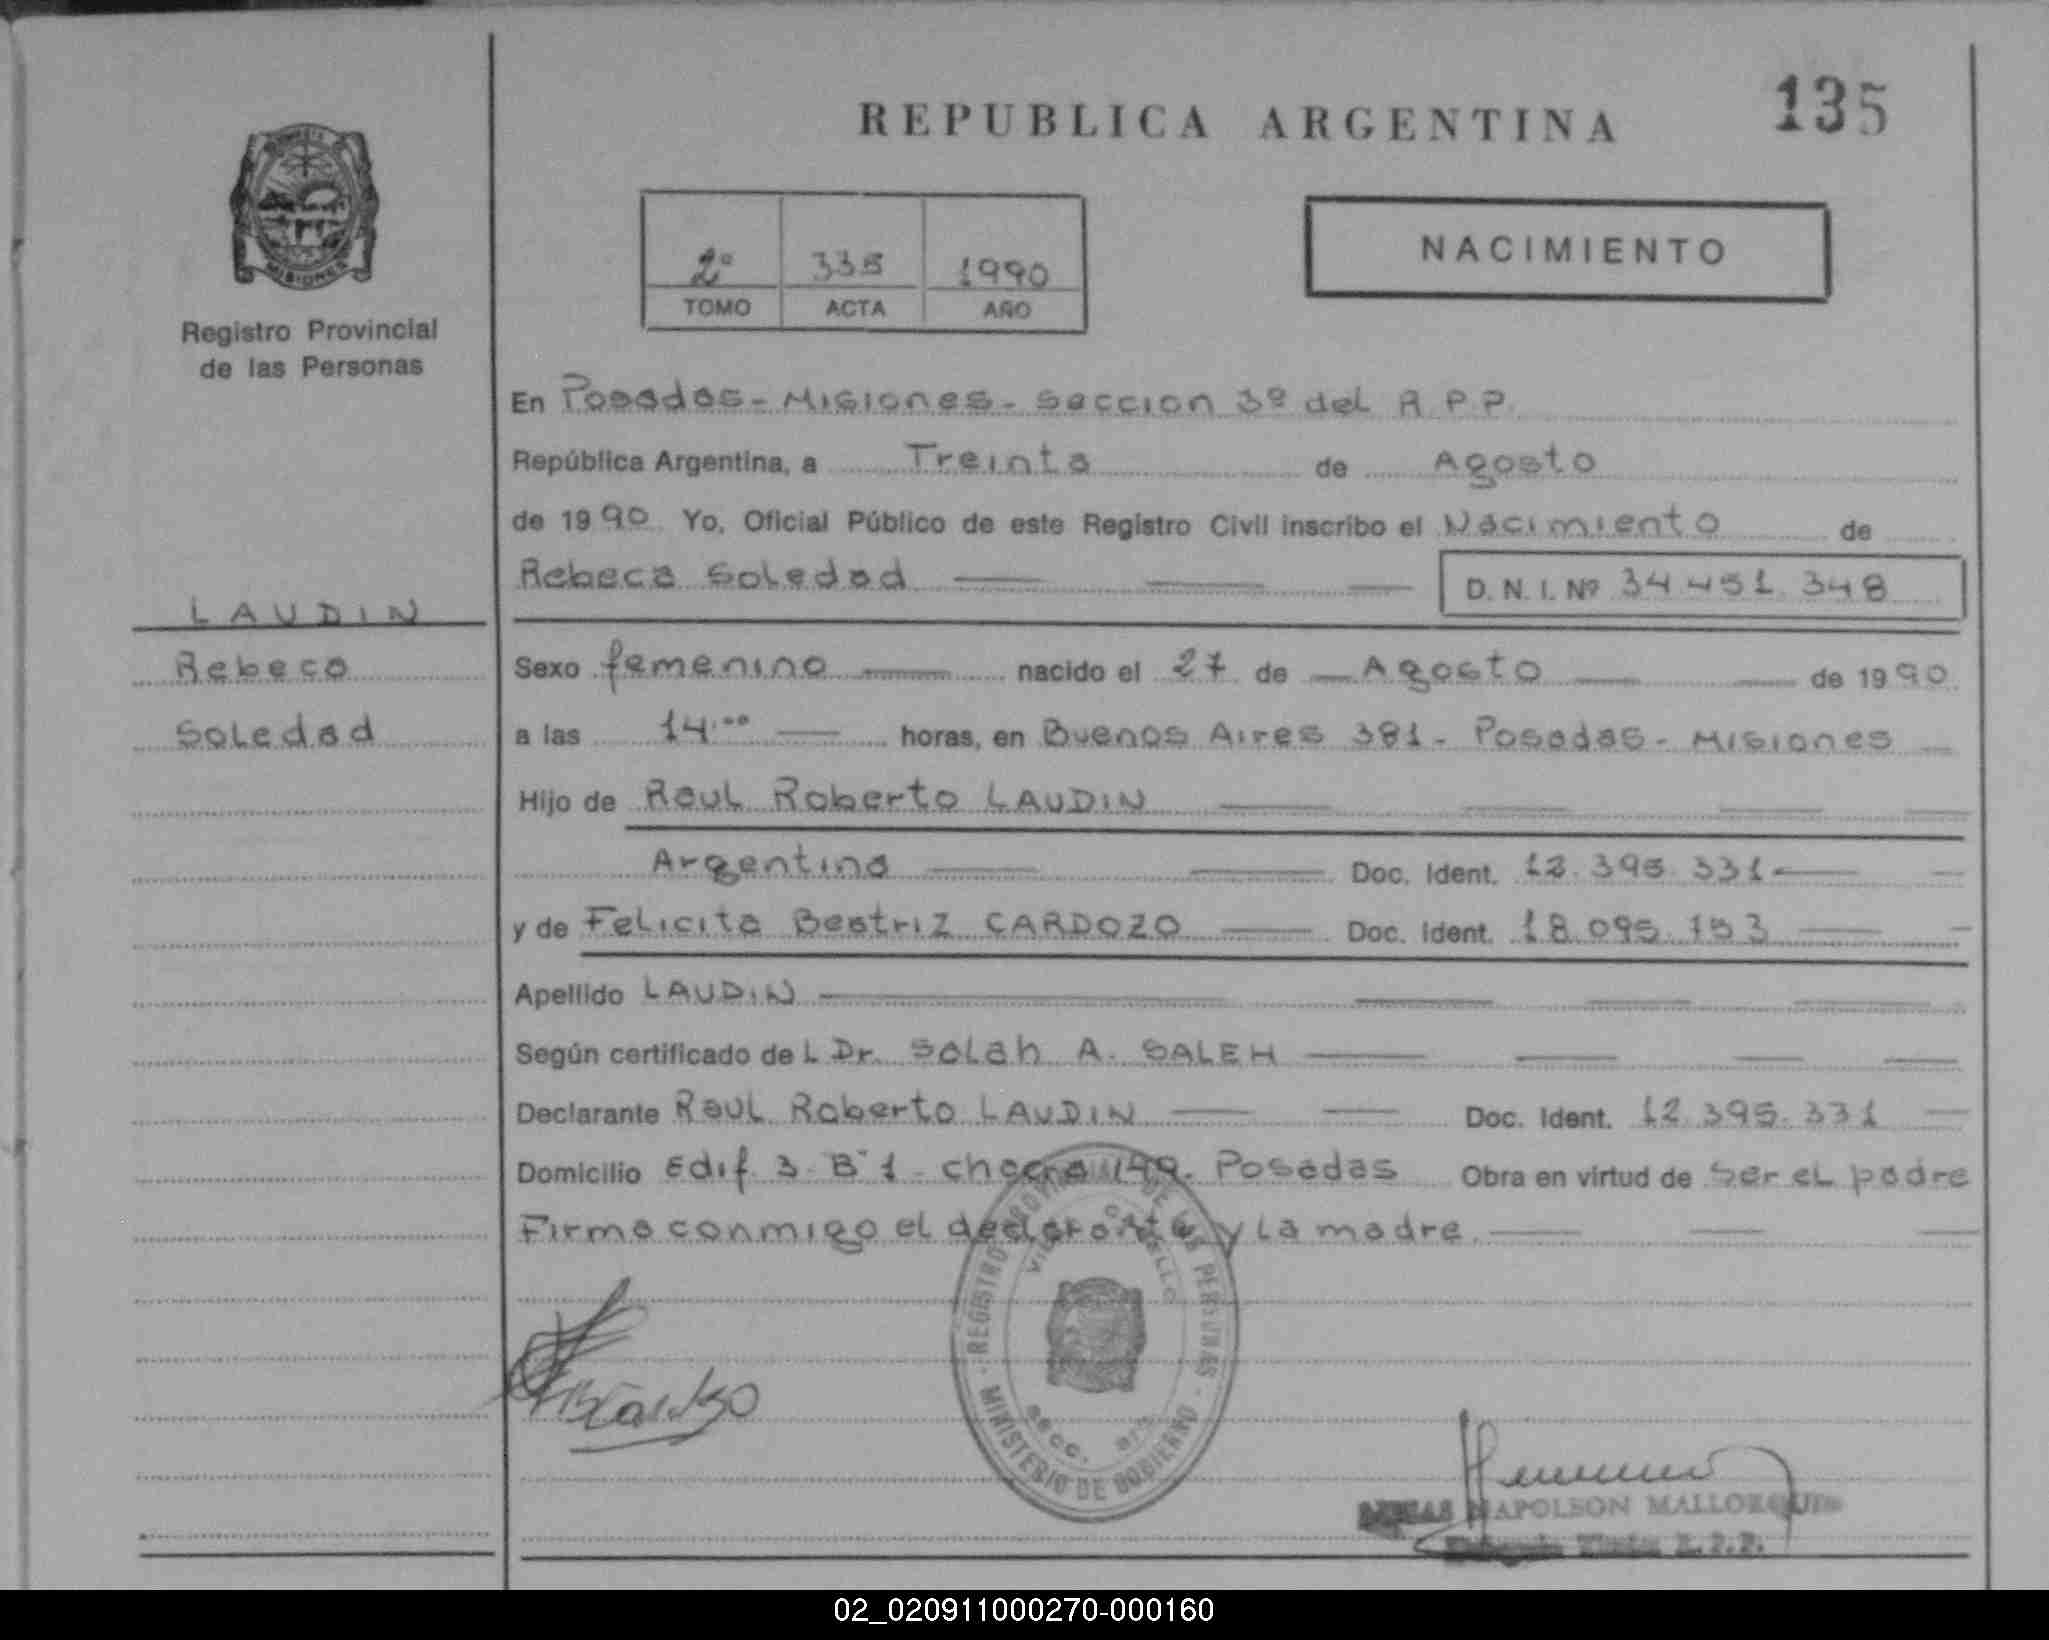 REPUBLICA ARGENTINA
135
MISIONES
Registro Provincial
de las Personas
2º 335 1990
TOMO ACTA AÑO
NACIMIENTO
En Posadas - Misiones - Seccion 3º del R.P.P.
República Argentina, a Treinta de Agosto
de 1990 Yo, Oficial Público de este Registro Civil inscribo el Nacimiento de
Rebeca Soledad D.N.I. Nº 34.451.348
LAUDIN
Rebeca
Soledad
Sexo femenino nacido el 27 de Agosto de 1990
a las 14:00 horas, en Buenos Aires 381 - Posadas - Misiones
Hijo de Raul Roberto LAUDIN
Argentina Doc. Ident. 12.395.331
y de Felicita Beatriz CARDOZO Doc. Ident. 18.095.153
Apellido LAUDIN
Según certificado del Dr. Salah A. SALEH
Declarante Raul Roberto LAUDIN Doc. Ident. 12.395.331
Domicilio Edif. 3 - Bº 1 - chacra 149. Posadas Obra en virtud de Ser el padre
Firma conmigo el declarante y la madre.
REGISTRO PROVINCIAL DE LAS PERSONAS
MINISTERIO DE GOBIERNO
NAPOLEON
R.P.P.
02_020911000270-000160